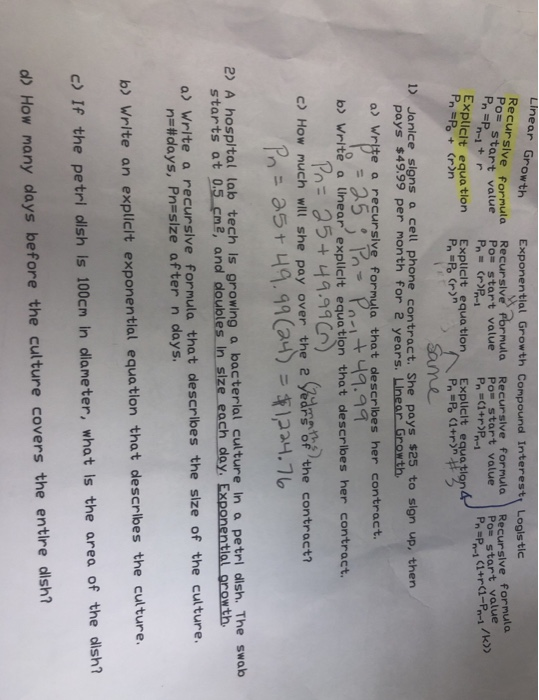 Linear Growth Exponential Growth Compound Interest Logistic
Recursive formula Recursive formula Recursive formula Recursive formula
Po= start value Po= start value Po= start value Po= start value
Pn =Pn-1 + r Pn = (r)Pn-1 Pn =(1+r)Pn-1 Pn=Pn-1 (1+r(1-Pn-1 /k))
Explicit equation Explicit equation Explicit equation
Pn =Po + (r)n Pn =Po (r)ⁿ Pn =Po (1+r)ⁿ #3
same
1) Janice signs a cell phone contract. She pays $25 to sign up, then
pays $49.99 per month for 2 years. Linear Growth.
a) Write a recursive formula that describes her contract.
Po = 25; Pn = Pn-1 + 49.99
b) Write a linear explicit equation that describes her contract.
Pn = 25 + 49.99(n)
(24 months)
c) How much will she pay over the 2 years of the contract?
Pn = 25 + 49.99(24) = $1224.76
2) A hospital lab tech is growing a bacterial culture in a petri dish. The swab
starts at 0.5 cm², and doubles in size each day. Exponential growth.
a) Write a recursive formula that describes the size of the culture.
n=#days, Pn=size after n days.
b) Write an explicit exponential equation that describes the culture.
c) If the petri dish is 100cm in diameter, what is the area of the dish?
d) How many days before the culture covers the entire dish?